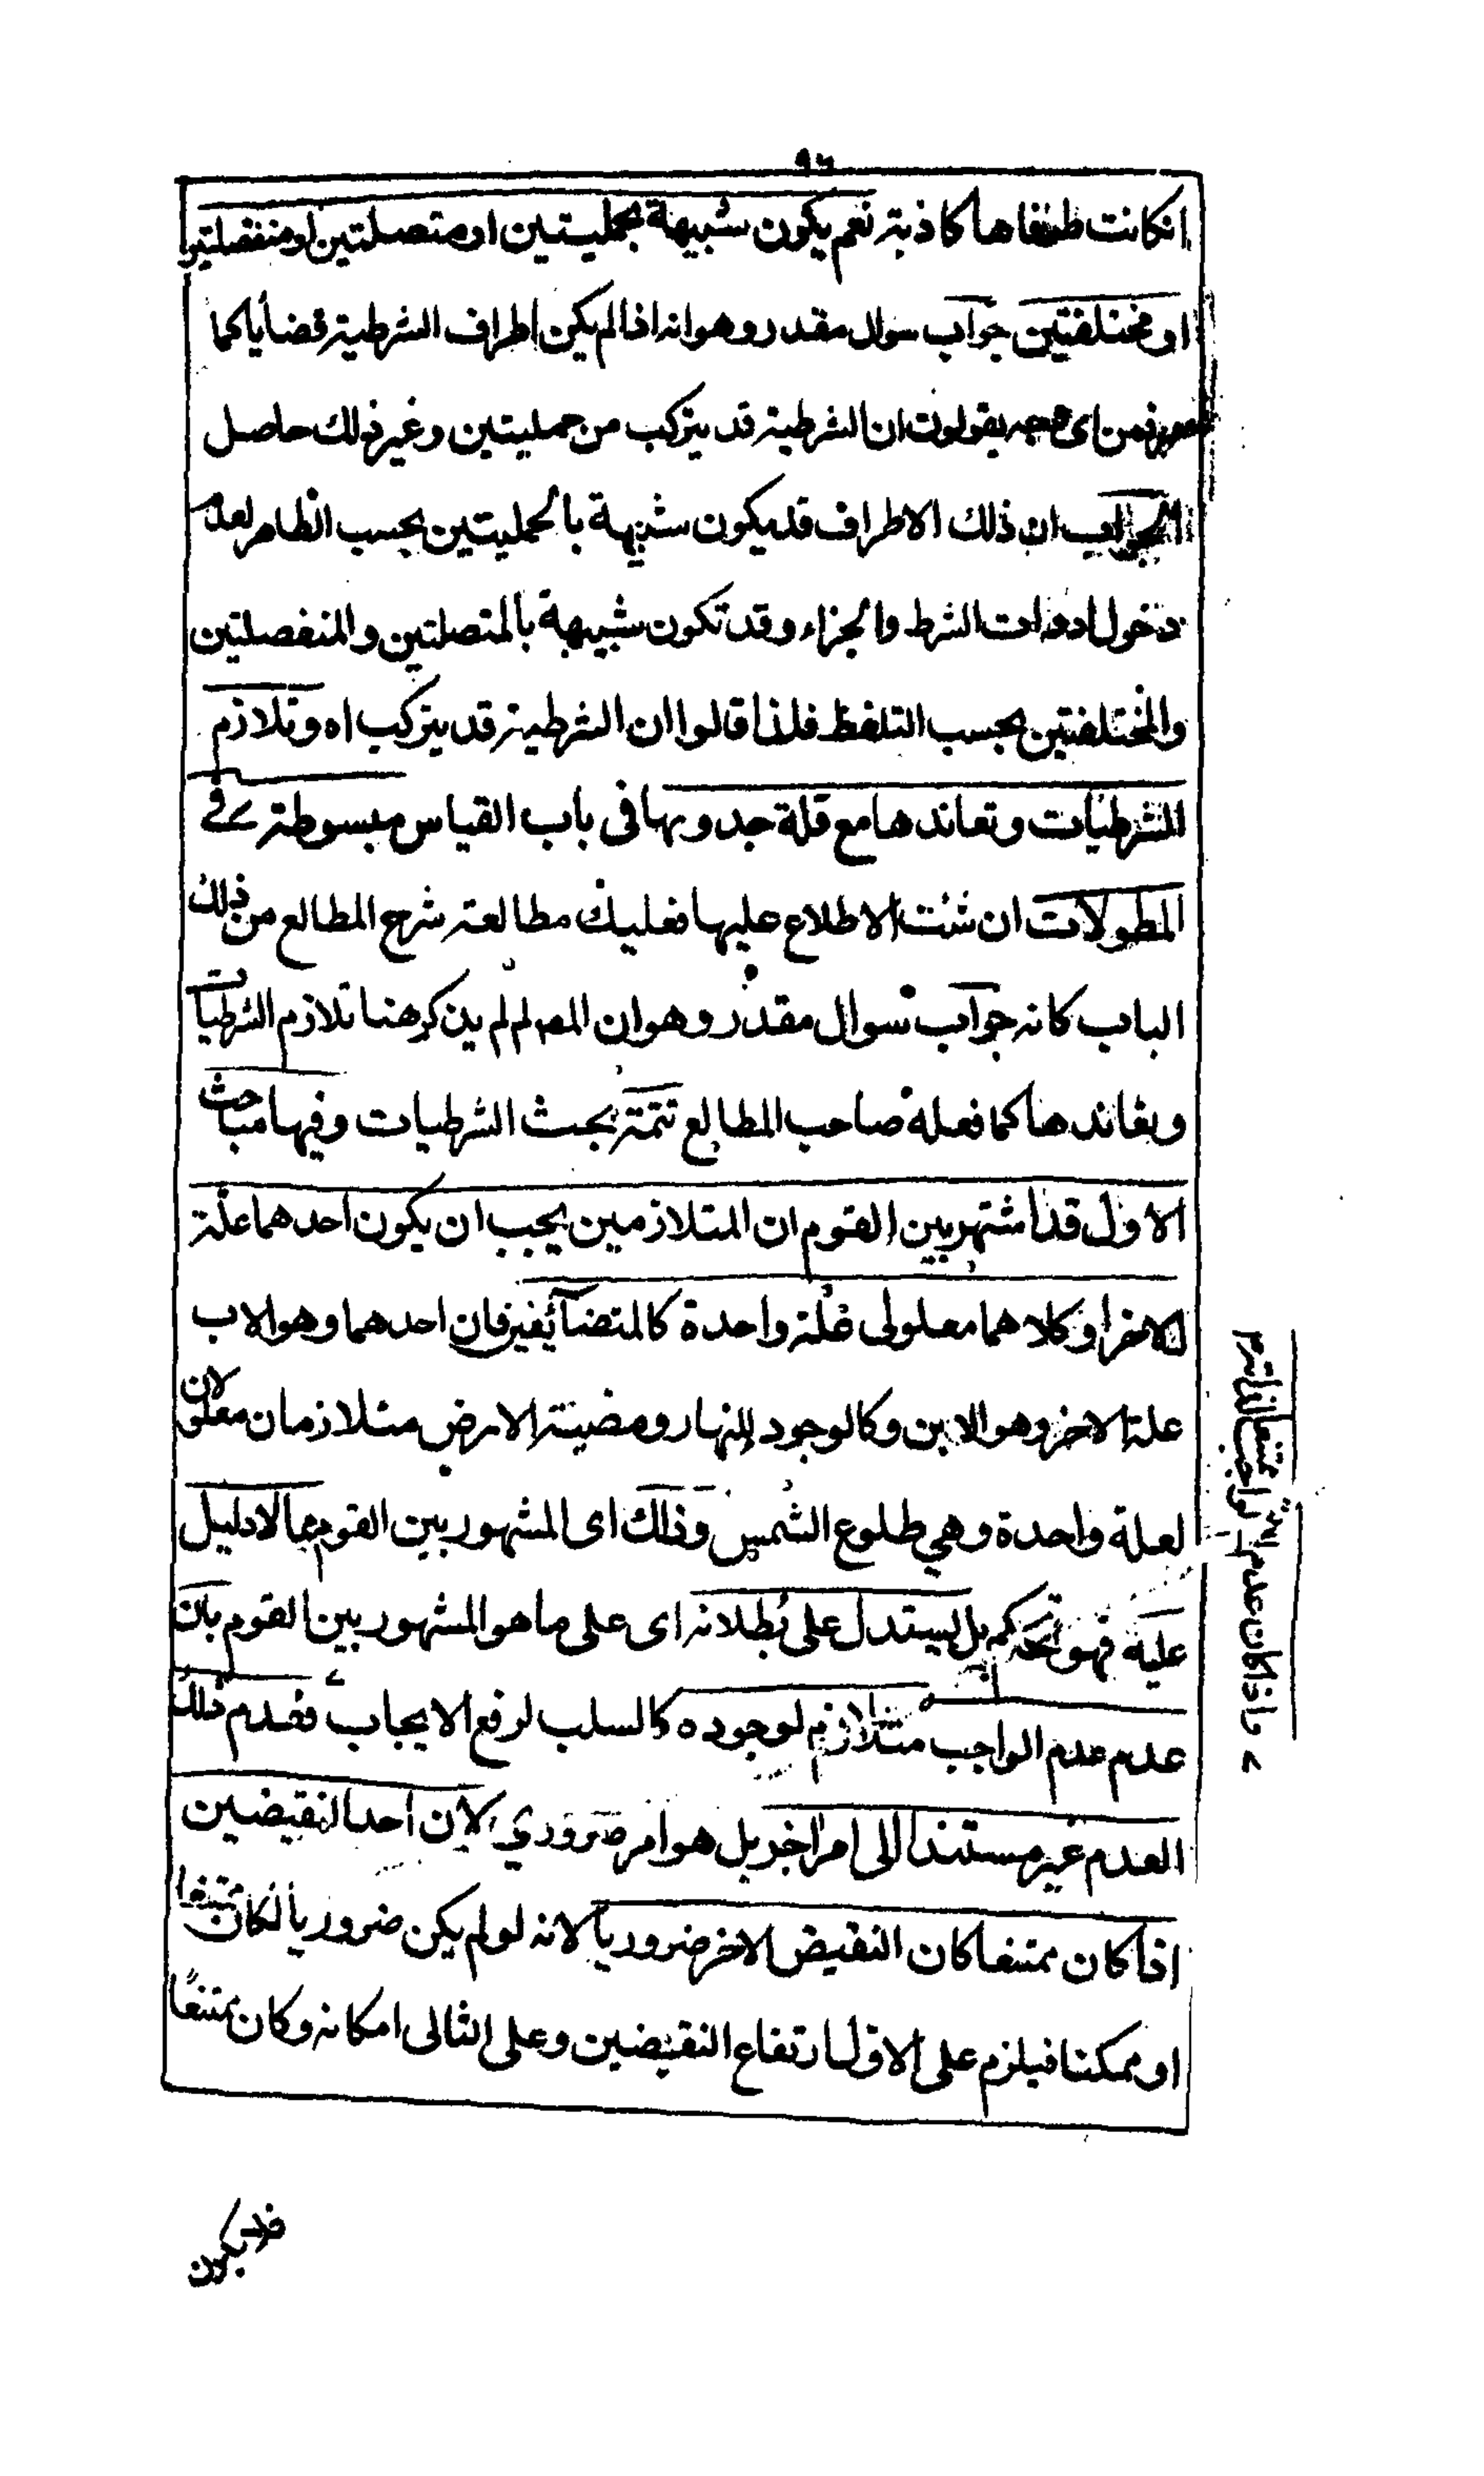 ٩٦
انكانت طرفاها كاذبة نعم يكون شبيهة بحمليتين او متصلتين او منفصلتين
او مختلفتين جواب سوال مقدر وهو انه اذا لم يكن اطراف الشرطية قضايا كما
فمن اى وجه يقولون ان الشرطية قد يتركب من حمليتين وغير ذلك حاصل
الجواب ان ذلك الاطراف قد يكون شبيهة بالحمليتين بحسب الظاهر لعدم
دخول ادوات الشرط والجزاء وقد تكون شبيهة بالمتصلتين والمنفصلتين
والمختلفتين بحسب التلفظ فلذا قالوا ان الشرطية قد يتركب اه وتلازم
الشرطيات وتعاندها مع قلة جدوبها فى باب القياس مبسوطة في
المطولات ان شئت الاطلاع عليها فعليك مطالعة شرح المطالع من ذلك
الباب كانه جواب سوال مقدر وهو ان المصـ لم لم يذكر هنا تلازم الشرطيات
وتعاندها كما فعله صاحب المطالع تتمة بحث الشرطيات وفيها مباحث
الاول قد اشتهر بين القوم ان المتلازمين يجب ان يكون احدهما علة
للاخر او كلاهما معلولى علة واحدة كالمتضائفين فان احدهما وهو الاب
علة الاخر وهو الابن وكالوجود للنهار ومضيئة الارض متلازمان معلولان
لعلة واحدة وهي طلوع الشمس وذلك اى المشهور بين القوم مما لا دليل
عليه فهو تحكم بل يستدل على بطلانه اى على ما هو المشهور بين القوم بان
عدم عدم الواجب متلازم لوجوده كالسلب لرفع الايجاب فعدم ذلك
العدم غير مستند الى امر اخر بل هو امر ضروري لان احد النقيضين
اذا كان ممتنعا كان النقيض الاخر ضروريا لانه لو لم يكن ضروريا لكان ممتنعا
او ممكنا فيلزم على الاول ارتفاع النقيضين وعلى الثانى امكانه وكان ممتنعًا
فاذا كان عدم الواجب ممتنعا